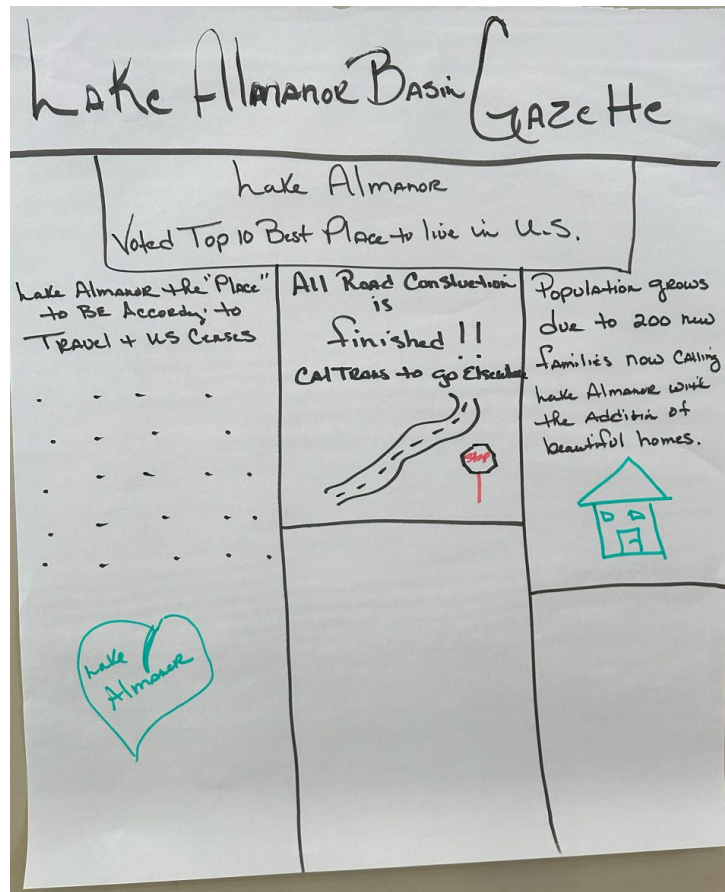 Lake Almanor Basin Gazette
Lake Almanor
Voted Top 10 Best Place to live in U.S.
Lake Almanor the "Place"
to BE According to
Travel + US Censes
Lake
Almanor
All Road Constuction
is
finished !!
CalTrans to go Elsewhere
Stop
Population grows
due to 200 new
families now calling
Lake Almanor with
the Addition of
beautiful homes.